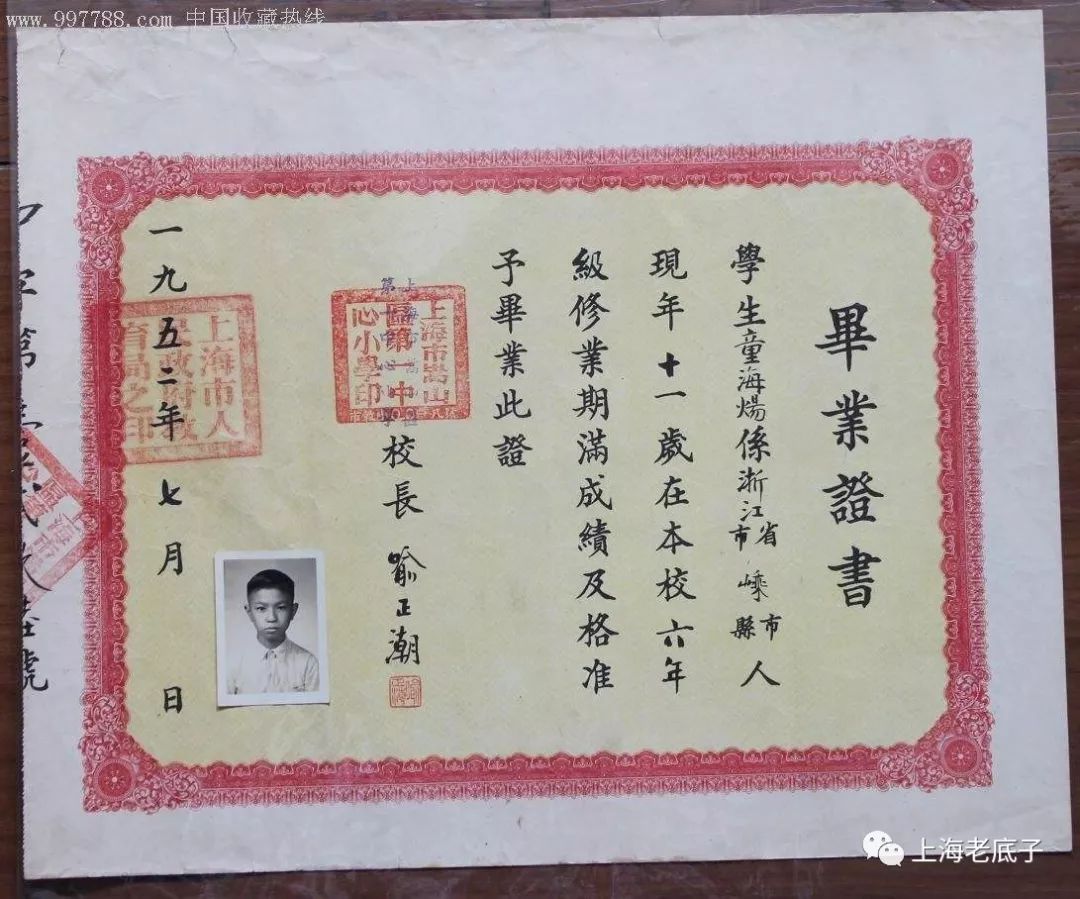 www.997788.com 中国收藏热线
畢業證書
學生童海煬係浙江省市嵊市縣人
現年十一歲在本校六年
級修業期滿成績及格准
予畢業此證
校長 喻正潮
上海市嵩山
區第一中
心小學印
一九五二年七月 日
上海市人
民政府教
育局之印
上海老底子